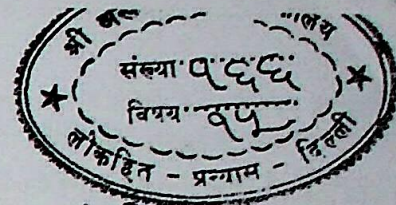 श्री
संख्या १६६
विषय १५
लोकहित - प्रन्यास - दिल्ली